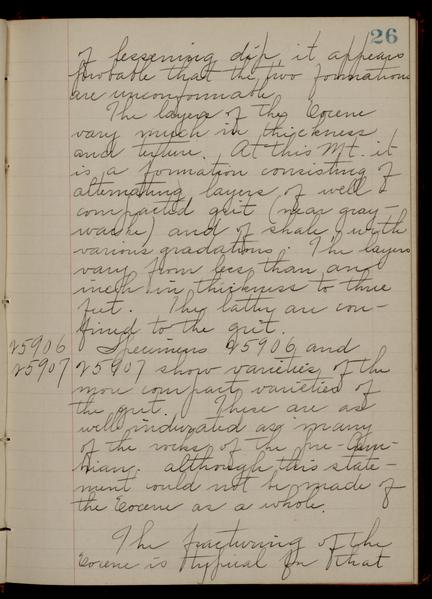 26
of lessening dip, it appears
probable that the two formations
are unconformable.
The layers of the Eocene
vary much in thickness
and texture. At this Mt. it
is a formation consisting of
alternating layers of well
compacted grit (near gray-
wacke) and of shale, with
various gradations. The layers
vary from less than an
inch in thickness to three
feet. The latter are con-
fined to the grit.
25906 Specimens 25906 and
25907 25907 show varieties of the
more compact varieties of
the grit. These are as
well indurated as many
of the rocks of the pre-Cam-
brian, although this state-
ment could not be made of
the Eocene as a whole.
The fracturing of the
Eocene is typical in that